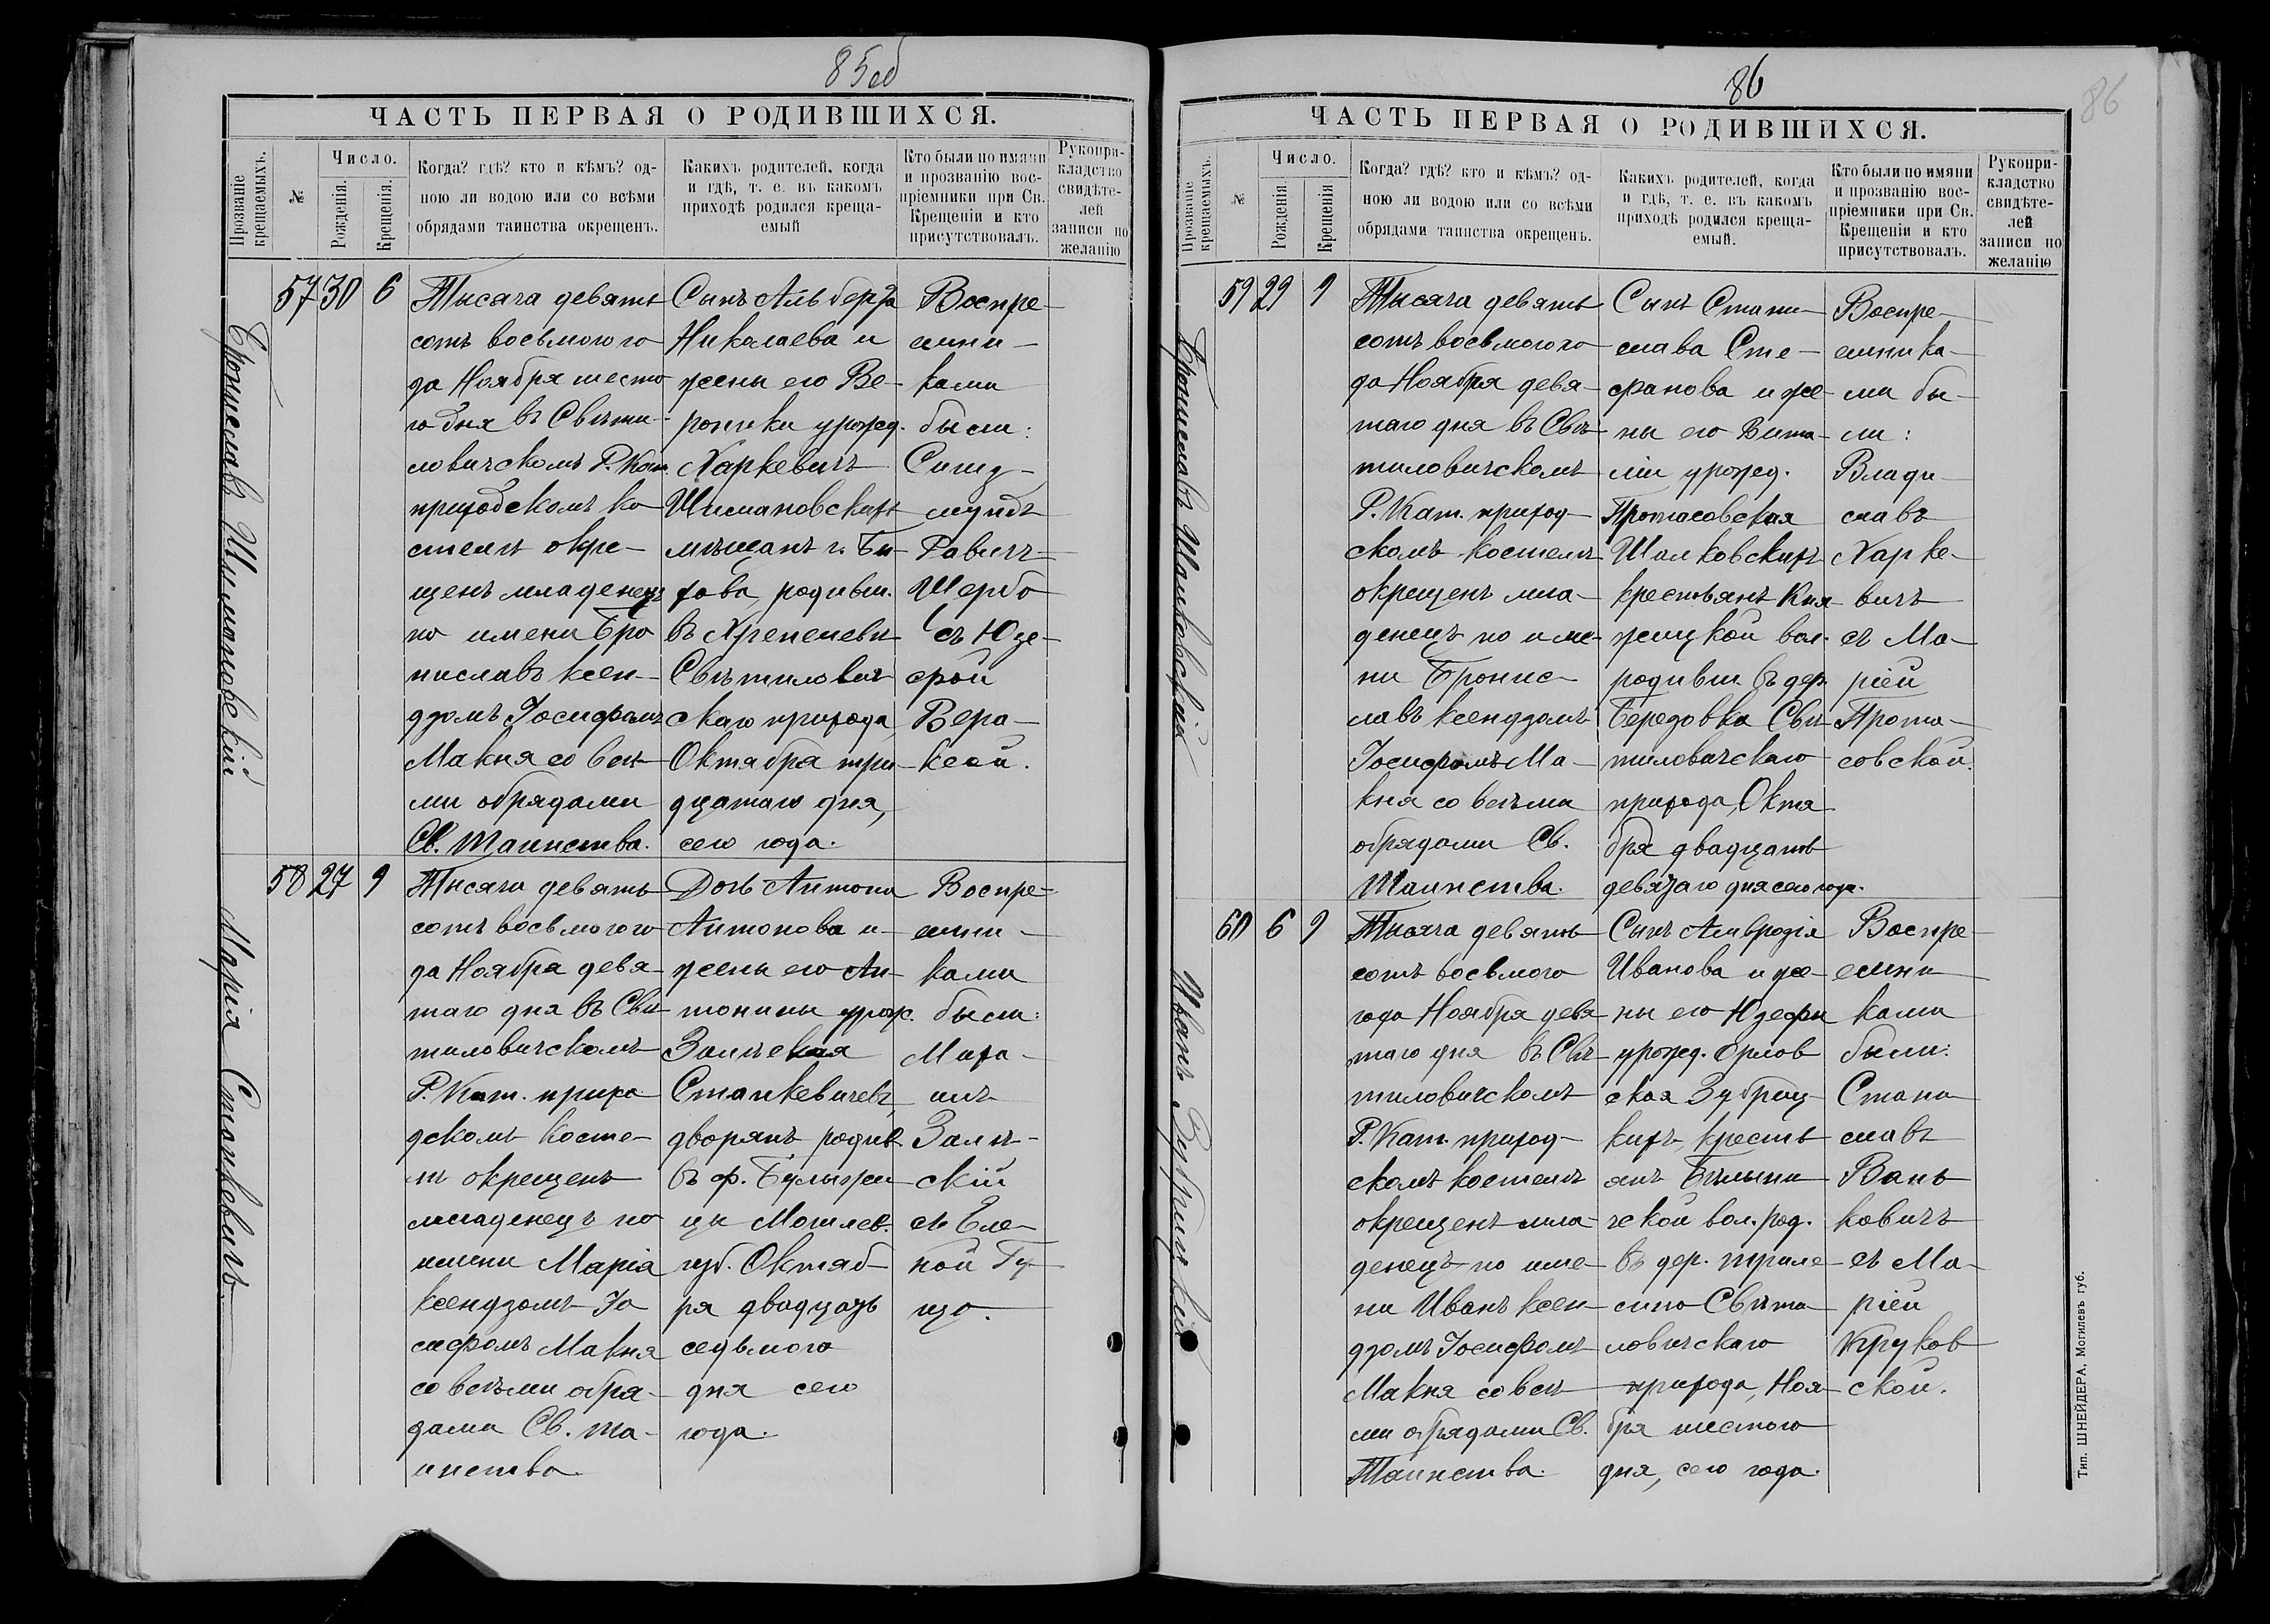 85об
ЧАСТЬ ПЕРВАЯ О РОДИВШИХСЯ.
Прозваніе крещаемыхъ.
№
Число.
Рожденія.
Крещенія.
Когда? гдѣ? кто и кѣмъ? од-
ною ли водою или со всѣми
обрядами таинства окрещенъ.
Какихъ родителей, когда
и гдѣ, т. е. въ какомъ
приходѣ родился креща-
емый
Кто были по имяни
и прозванію вос-
пріемники при Св.
Крещеніи и кто
присутствовалъ.
Рукопри-
кладство
свидѣте-
лей
записи по
желанію
Брониславъ Шимановскій
57 30 6
Тысяча девять
сотъ восьмого го
да Ноября шесто
го дня въ Свѣти-
ловичскомъ Р. Кат.
приходскомъ ко
стелѣ окре-
щенъ младенецъ
по имени Бро
ниславъ ксен-
дзомъ Іосифомъ
Макня со всѣ-
ми обрядами
Св. Таинства.
Сынъ Альберта
Николаева и
жены его Ве-
роники урожд.
Харкевичъ
Шимановскихъ
мѣщанъ г. Бы-
хова, родивш.
въ
Свѣтилович
скаго прихода,
Октября три-
дцатаго дня,
сего года.
Воспре-
емни-
ками
были:
Сигиз-
мундъ
Равичъ-
Щербо
съ Юзе-
фой
Вера-
ксой.
Марія Станкевичъ
58 27 9
Тысяча девять
сотъ восьмого го
да Ноября девя-
таго дня въ Свѣ
тиловичскомъ
Р. Кат. прихо
дскомъ косте-
лѣ окрещенъ
младенецъ по
имени Марія
ксендзомъ Іо
сифомъ Макня
со всѣми обря-
дами Св. Та-
инства.
Дочь Антона
Антонова и
жены его Ан-
тонины урожд.
Залѣская
Станкевичевъ,
дворянъ, родив.
въ ф.
цы Могилев.
губ. Октяб-
ря двадцать
седьмого
дня сего
года.
Воспре-
емни-
ками
были:
Миха-
илъ
Залѣ-
скій
съ Еле-
ной Гу-
що.
86
86
ЧАСТЬ ПЕРВАЯ О РОДИВШИХСЯ.
Прозваніе крещаемыхъ.
№
Число.
Рожденія.
Крещенія
Когда? гдѣ? кто и кѣмъ? од-
ною ли водою или со всѣми
обрядами таинства окрещенъ.
Какихъ родителей, когда
и гдѣ, т. е. въ какомъ
приходѣ родился креща-
емый.
Кто были по имяни
и прозванію вос-
пріемники при Св.
Крещеніи и кто
присутствовалъ.
Рукопри-
кладство
свидѣте-
лей
записи по
желанію
Брониславъ Шалковскій
59 29 9
Тысяча девять
сотъ восьмого го
да Ноября девя-
таго дня въ Свѣ-
тиловичскомъ
Р. Кат. приход-
скомъ костелѣ
окрещенъ мла-
денецъ по име-
ни Бронис-
лавъ ксендзомъ
Іосифомъ Ма-
кня со всѣми
обрядами Св.
Таинства.
Сынъ Стани-
слава Сте-
фанова и же-
ны его Вита-
ліи урожд.
Протасовская
Шалковскихъ
крестьянъ Кня-
жицкой вол.
родивш. въ дер.
Бередовка Свѣ-
тиловичскаго
прихода, Октя
бря двадцать
девятаго дня сего года.
Воспре-
емника-
ми бы-
ли:
Влади-
славъ
Харке-
вичъ
съ Ма-
ріей
Прота-
совской.
Иванъ Зубрицкій
60 6 9
Тысяча девять
сотъ восьмого
года Ноября девя
таго дня въ Свѣ-
тиловичскомъ
Р. Кат. приход-
скомъ костелѣ
окрещенъ мла-
денецъ по име-
ни Иванъ ксен-
дзомъ Іосифомъ
Макня со всѣ-
ми обрядами Св.
Таинства.
Сынъ Амврозія
Иванова и же-
ны его Юзефы
урожд. Орлов
ская Зубриц-
кихъ, кресть
янъ Бѣлыни-
чской вол. род.
въ дер. Триле-
сино Свѣти-
ловичскаго
прихода, Ноя-
бря шестого
дня, сего года.
Воспре-
емни
ками
были:
Стани
славъ
Вань
ковичъ
съ Ма-
ріей
Круков
ской.
Тип. ШНЕЙДЕРА, Могилевъ губ.